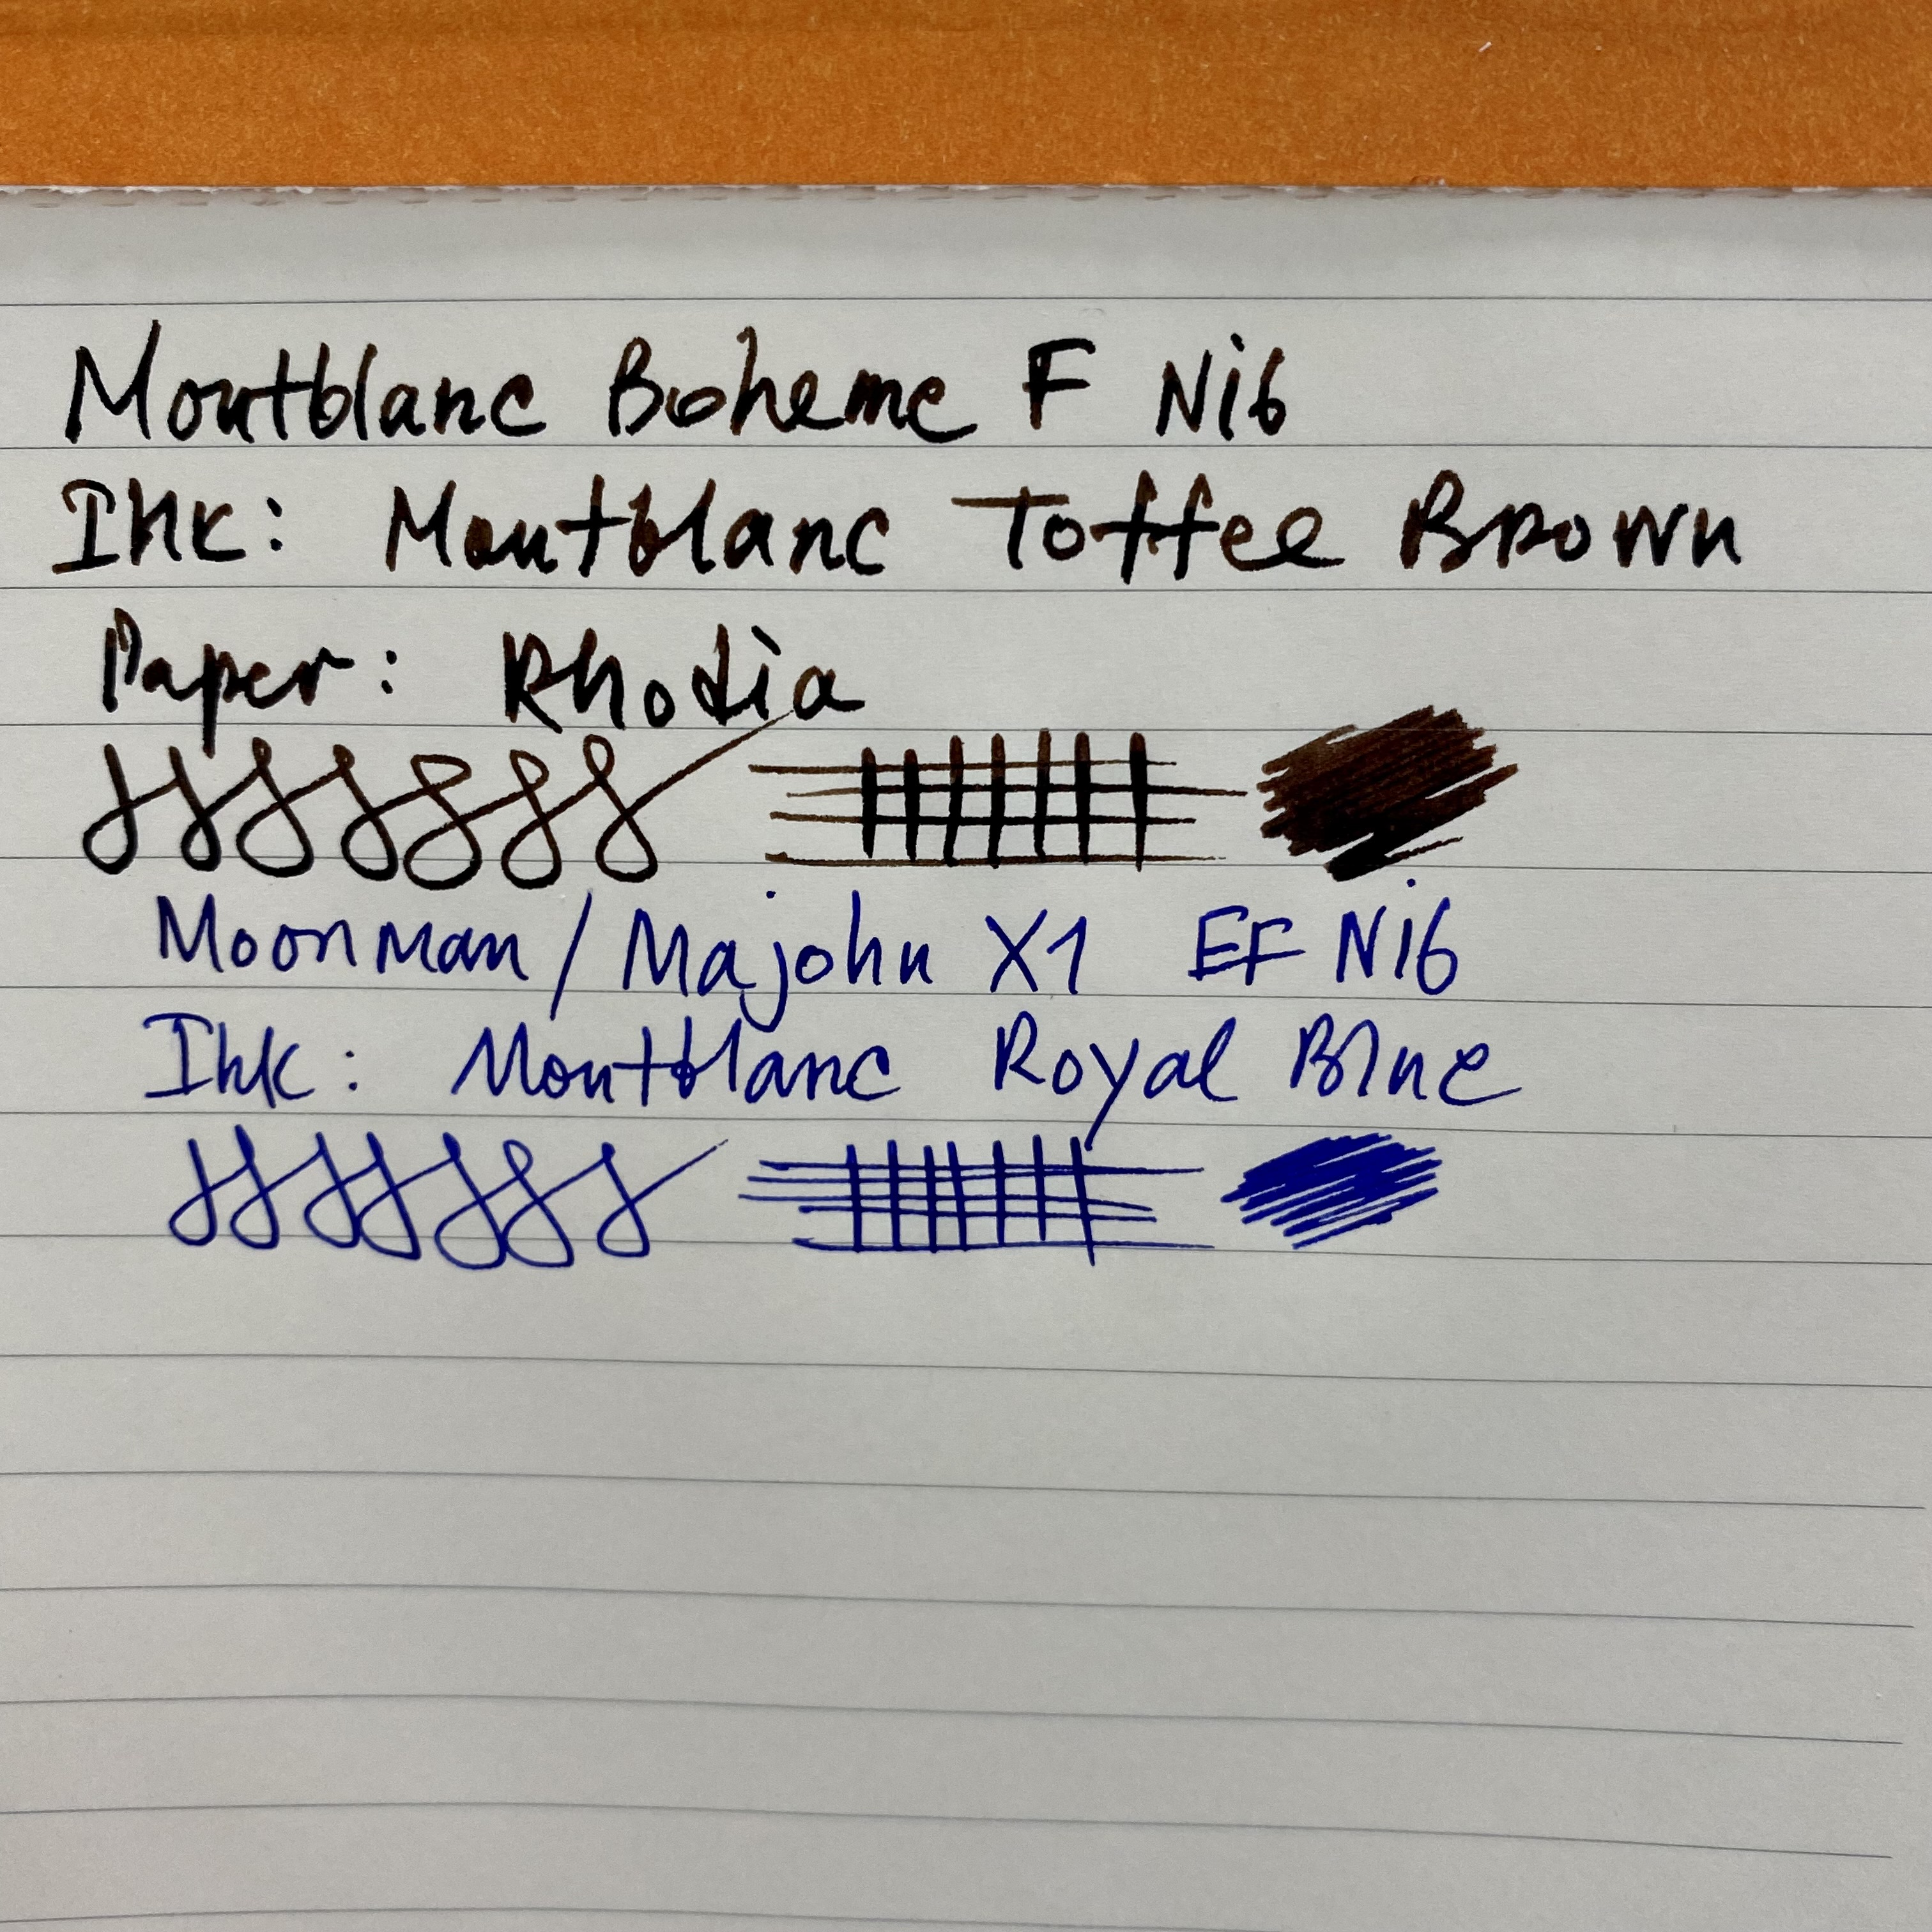 Montblanc Boheme F Nib
Ink: Montblanc Toffee Brown
Paper: Rhodia
Moonman / Majohn X1 EF Nib
Ink: Montblanc Royal Blue